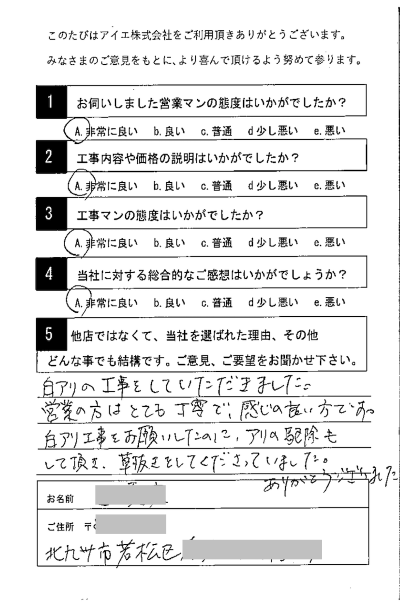 このたびはアイエ株式会社をご利用頂きありがとうございます。
みなさまのご意見をもとに、より喜んで頂けるよう努めて参ります。
1 お伺いしました営業マンの態度はいかがでしたか？
A.非常に良い b.良い c.普通 d少し悪い e.悪い
2 工事内容や価格の説明はいかがでしたか？
A.非常に良い b.良い c.普通 d少し悪い e.悪い
3 工事マンの態度はいかがでしたか？
A.非常に良い b.良い c.普通 d少し悪い e.悪い
4 当社に対する総合的なご感想はいかがでしょうか？
A.非常に良い b.良い c.普通 d少し悪い e.悪い
5 他店ではなくて、当社を選ばれた理由、その他
どんな事でも結構です。ご意見、ご要望をお聞かせ下さい。
白アリの工事をしていただきました。
営業の方はとても丁寧で、感じの良い方である。
白アリ工事をお願いしたのに、アリの駆除も
して頂き、草抜きをしてくださっていました。
ありがとうございました
お名前
ご住所 〒
北九州市若松区